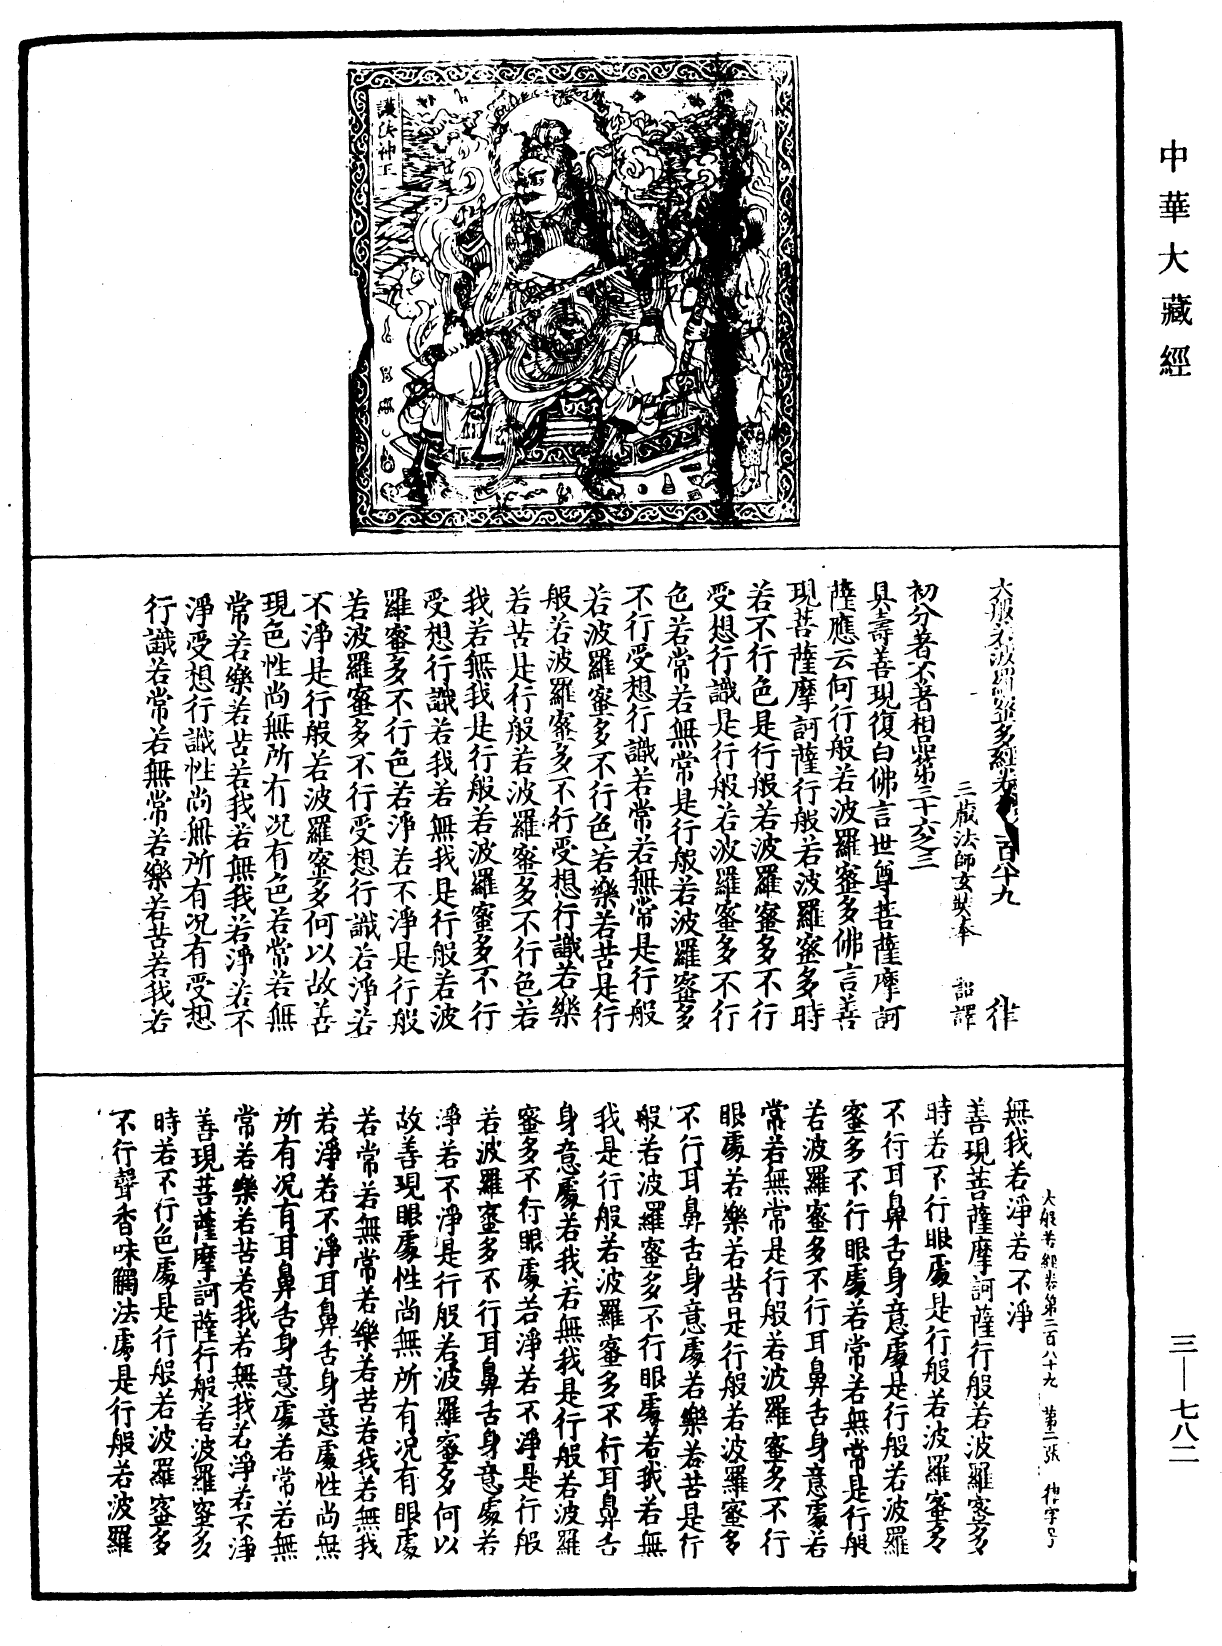 中華大藏經
護法神王
大般若波羅蜜多經卷第二百八十九 律
三藏法師玄奘奉 詔譯
初分著不著相品第三十六之三
具壽善現復白佛言世尊菩薩摩訶
薩應云何行般若波羅蜜多佛言善
現菩薩摩訶薩行般若波羅蜜多時
若不行色是行般若波羅蜜多不行
受想行識是行般若波羅蜜多不行
色若常若無常是行般若波羅蜜多
不行受想行識若常若無常是行般
若波羅蜜多不行色若樂若苦是行
般若波羅蜜多不行受想行識若樂
若苦是行般若波羅蜜多不行色若
我若無我是行般若波羅蜜多不行
受想行識若我若無我是行般若波
羅蜜多不行色若淨若不淨是行般
若波羅蜜多不行受想行識若淨若
不淨是行般若波羅蜜多何以故善
現色性尚無所有況有色若常若無
常若樂若苦若我若無我若淨若不
淨受想行識性尚無所有況有受想
行識若常若無常若樂若苦若我若
大般若經卷第二百八十九 第二張 律字号
無我若淨若不淨
善現菩薩摩訶薩行般若波羅蜜多
時若不行眼處是行般若波羅蜜多
不行耳鼻舌身意處是行般若波羅
蜜多不行眼處若常若無常是行般
若波羅蜜多不行耳鼻舌身意處若
常若無常是行般若波羅蜜多不行
眼處若樂若苦是行般若波羅蜜多
不行耳鼻舌身意處若樂若苦是行
般若波羅蜜多不行眼處若我若無
我是行般若波羅蜜多不行耳鼻舌
身意處若我若無我是行般若波羅
蜜多不行眼處若淨若不淨是行般
若波羅蜜多不行耳鼻舌身意處若
淨若不淨是行般若波羅蜜多何以
故善現眼處性尚無所有況有眼處
若常若無常若樂若苦若我若無我
若淨若不淨耳鼻舌身意處性尚無
所有況有耳鼻舌身意處若常若無
常若樂若苦若我若無我若淨若不淨
善現菩薩摩訶薩行般若波羅蜜多
時若不行色處是行般若波羅蜜多
不行聲香味觸法處是行般若波羅
三—七八二